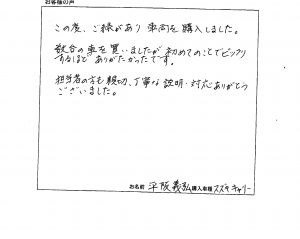 お客様の声
この度、ご縁があり車両を購入しました。
数台の車を買いましたが初めてのことでビックリ
するほどありがたかったです。
担当者の方も親切、丁寧な説明・対応ありがとう
ございました。
お名前 平阪義弘 購入車種 スズキキャリー